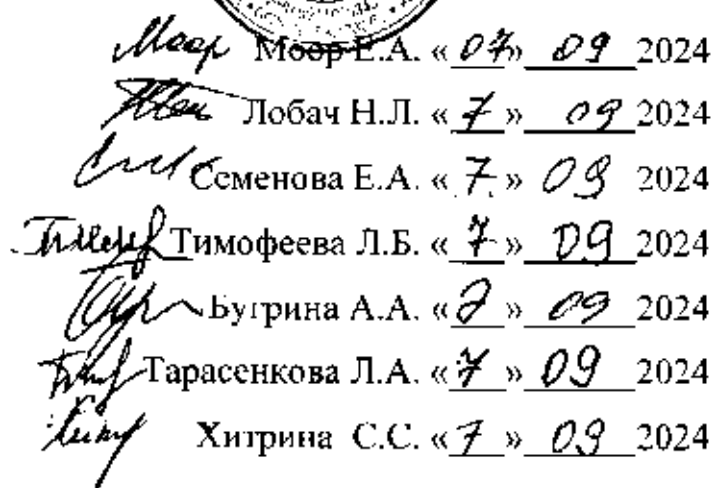 Моор Е.А. «07» 09 2024
Лобач Н.Л. «7» 09 2024
Семенова Е.А. «7» 09 2024
Тимофеева Л.Б. «7» 09 2024
Бугрина А.А. «7» 09 2024
Тарасенкова Л.А. «7» 09 2024
Хитрина С.С. «7» 09 2024